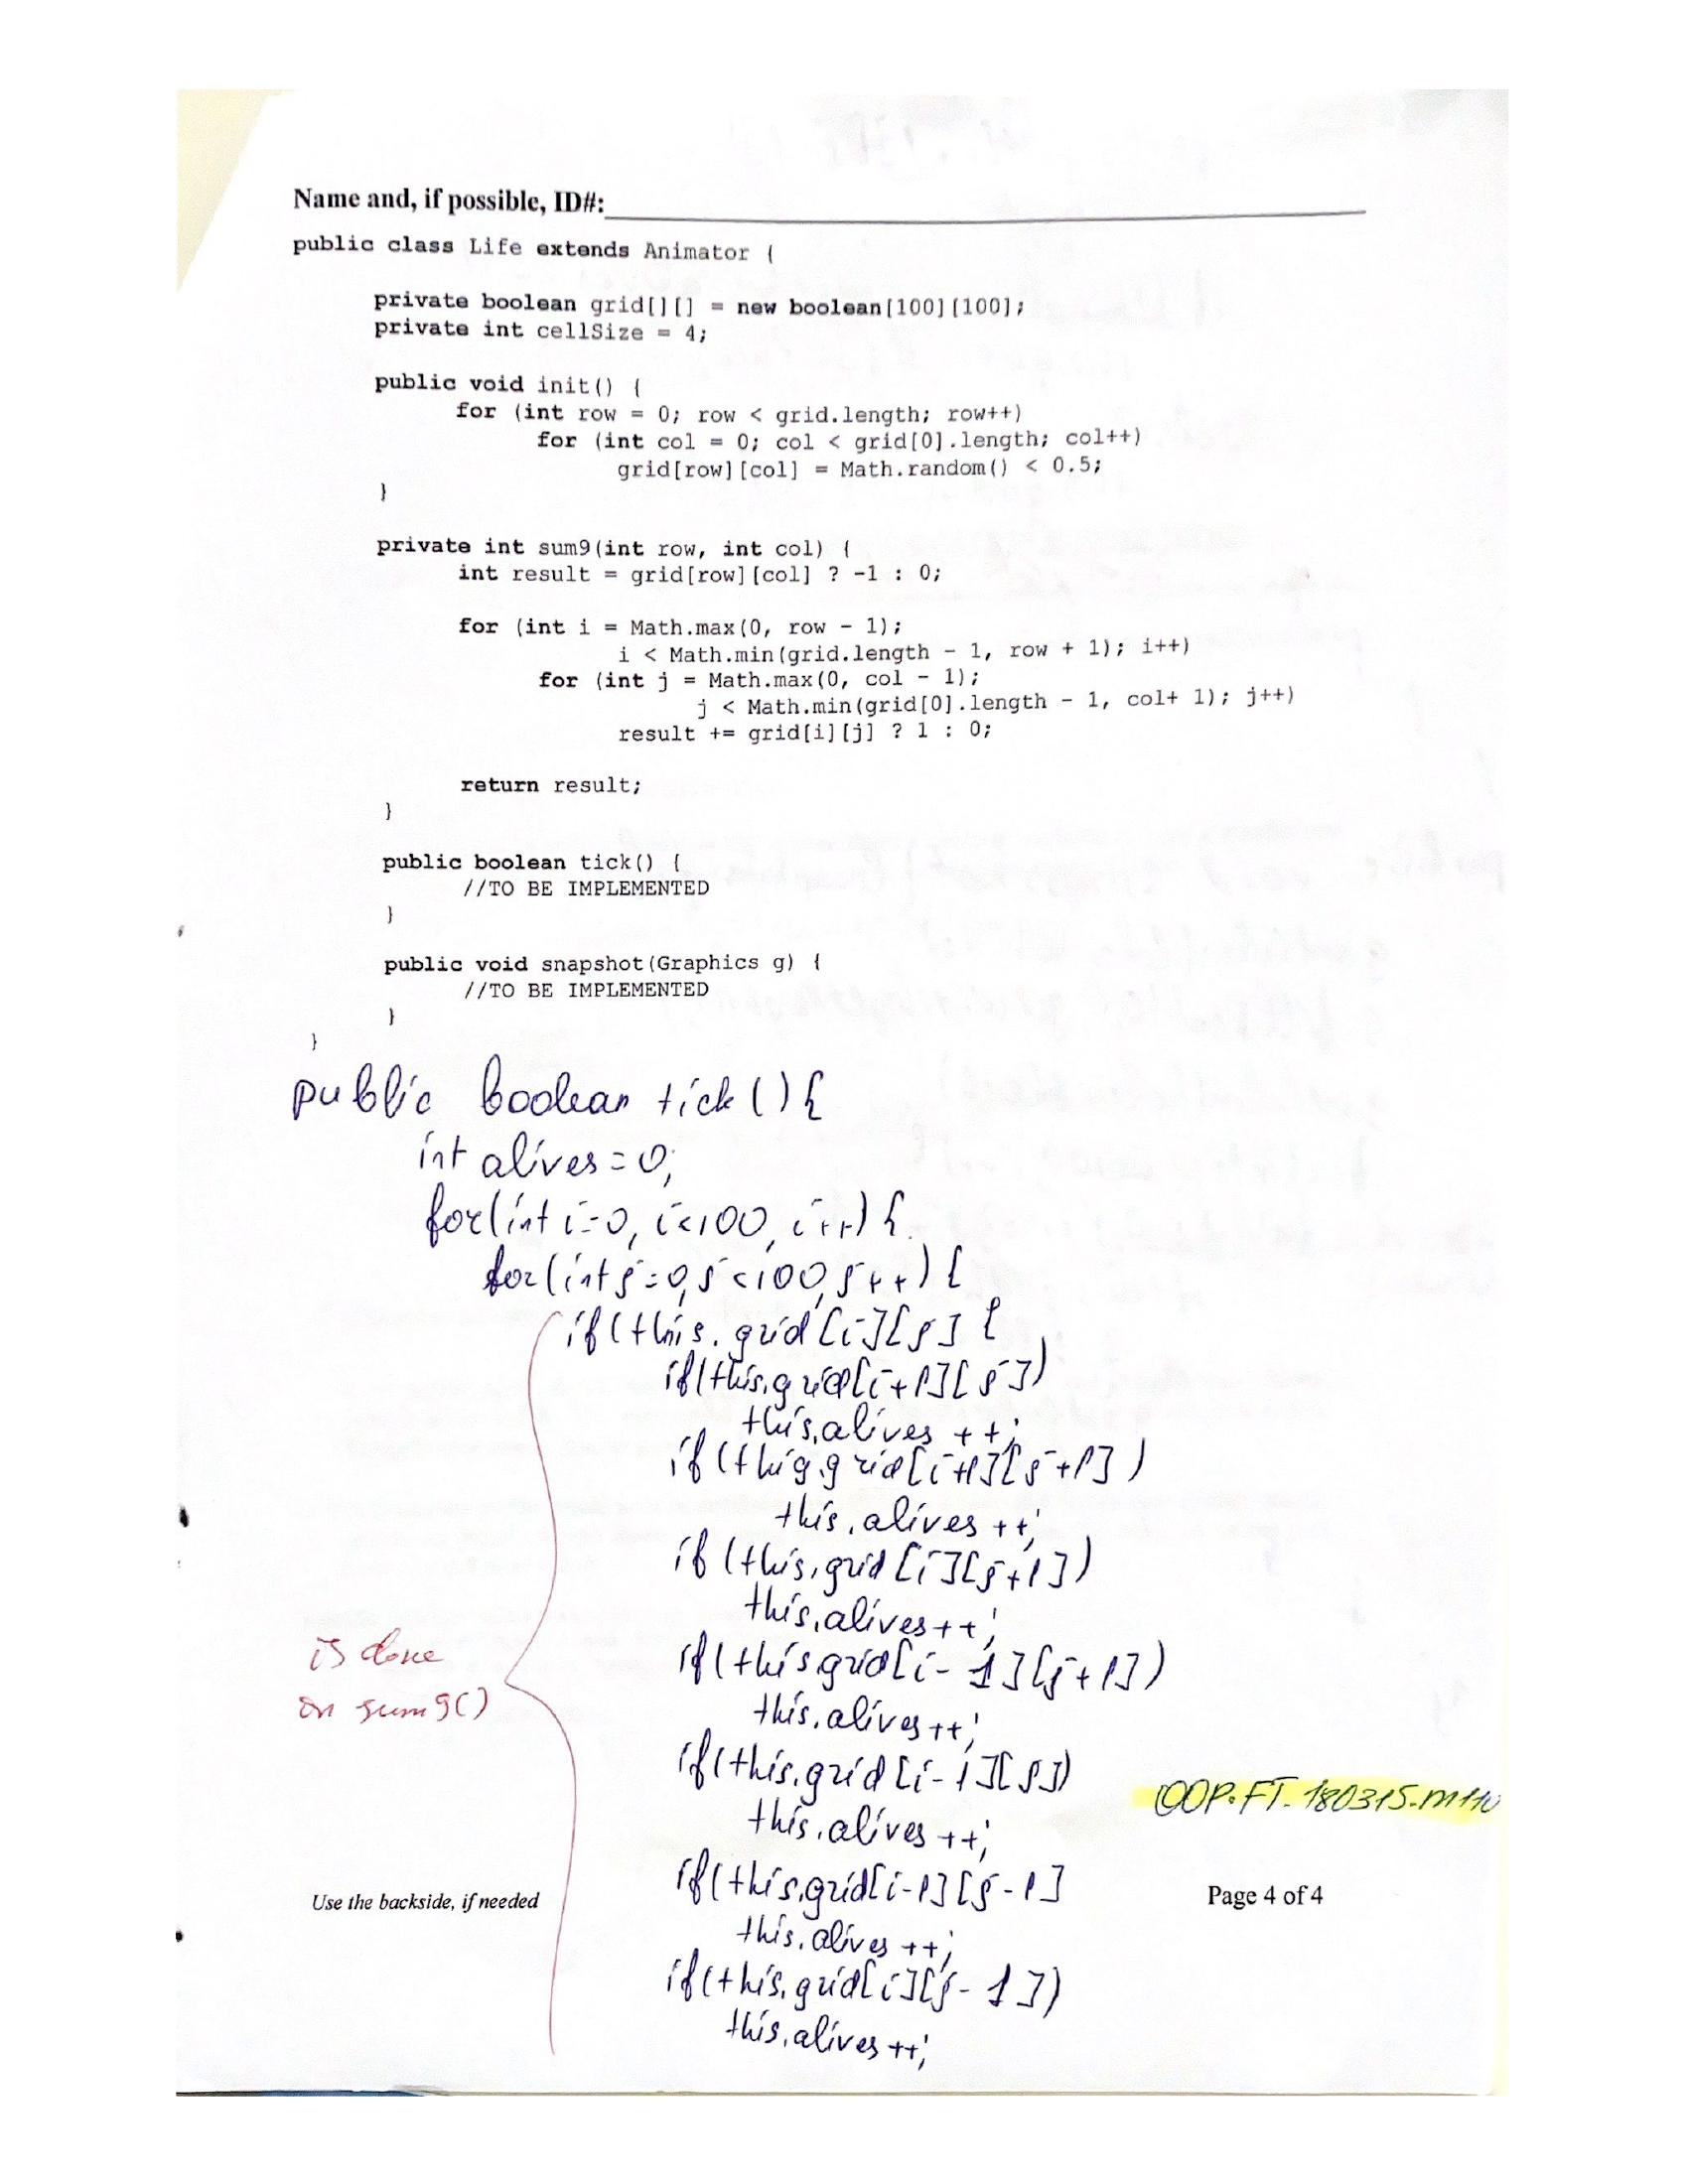 Name and, if possible, ID#:
public class Life extends Animator {
private boolean grid[][] = new boolean[100][100];
private int cellSize = 4;
public void init() {
for (int row = 0; row < grid.length; row++)
for (int col = 0; col < grid[0].length; col++)
grid[row][col] = Math.random() < 0.5;
}
private int sum9(int row, int col) {
int result = grid[row][col] ? -1 : 0;
for (int i = Math.max(0, row - 1);
i < Math.min(grid.length - 1, row + 1); i++)
for (int j = Math.max(0, col - 1);
j < Math.min(grid[0].length - 1, col+ 1); j++)
result += grid[i][j] ? 1 : 0;
return result;
}
public boolean tick() {
//TO BE IMPLEMENTED
}
public void snapshot(Graphics g) {
//TO BE IMPLEMENTED
}
}
public boolean tick(){
int alives=0;
for(int i=0, i<100, i++){
for(int j=0, j<100, j++){
if(this.grid[i][j] {
if(this.grid[i+1][j])
this.alives ++;
if(this.grid[i+1][j+1])
this.alives ++;
if(this.grid[i][j+1])
this.alives++;
if(this.grid[i-1][j+1])
is done
this.alives++;
on sum9()
if(this.grid[i-1][j])
OOP.FT.180315.M110
this.alives ++;
if(this.grid[i-1][j-1]
Use the backside, if needed
Page 4 of 4
this.alives ++;
if(this.grid[i][j-1])
this.alives ++;